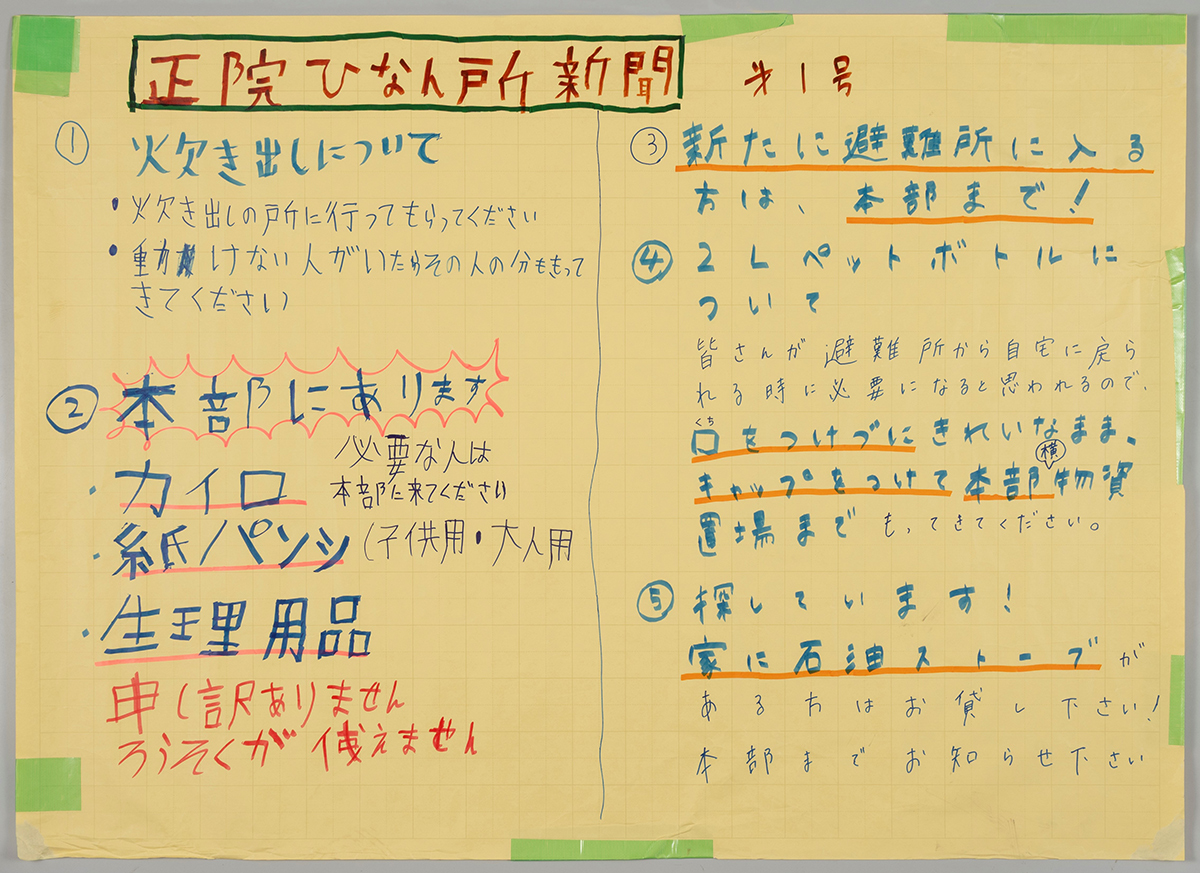 正院ひなん所新聞 才1号
① 火欠き出しについて
・火欠き出しの所に行ってもらってください
・動けない人がいたらその人の分ももって
きてください
② 本部にあります
必要な人は
本部に来てください
・カイロ
・紙パンツ(子供用・大人用
・生理用品
申し訳ありません
ろうそくが使えません
③ 新たに避難所に入る
方は、本部まで!
④ 2Lペットボトルに
ついて
皆さんが避難所から自宅に戻ら
れる時に必要になると思われるので、
くち
口をつけづにきれいなまま、
横
キャップをつけて本部物資
置場までもってきてください。
⑤ 探しています!
家に石油ストーブが
ある方はお貸し下さい!
本部までお知らせ下さい